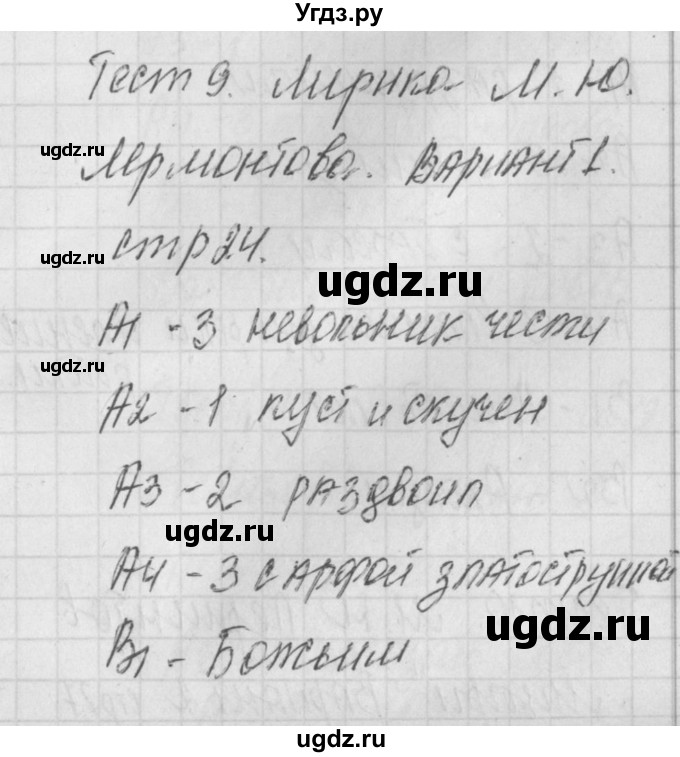 Угдз.ру
Тест 9. Лирика М. Ю.
ugdz.ru
Лермонтова. Вариант 1.
стр 24.
ugdz.ru
ugdz.ru
А1 - 3 невольник чести
А2 - 1 пуст и скучен
А3 - 2 раздвоил
ugdz.ru
А4 - 3 с арфой златострунной
ugdz.ru
В1 - Божьим
ugdz.ru